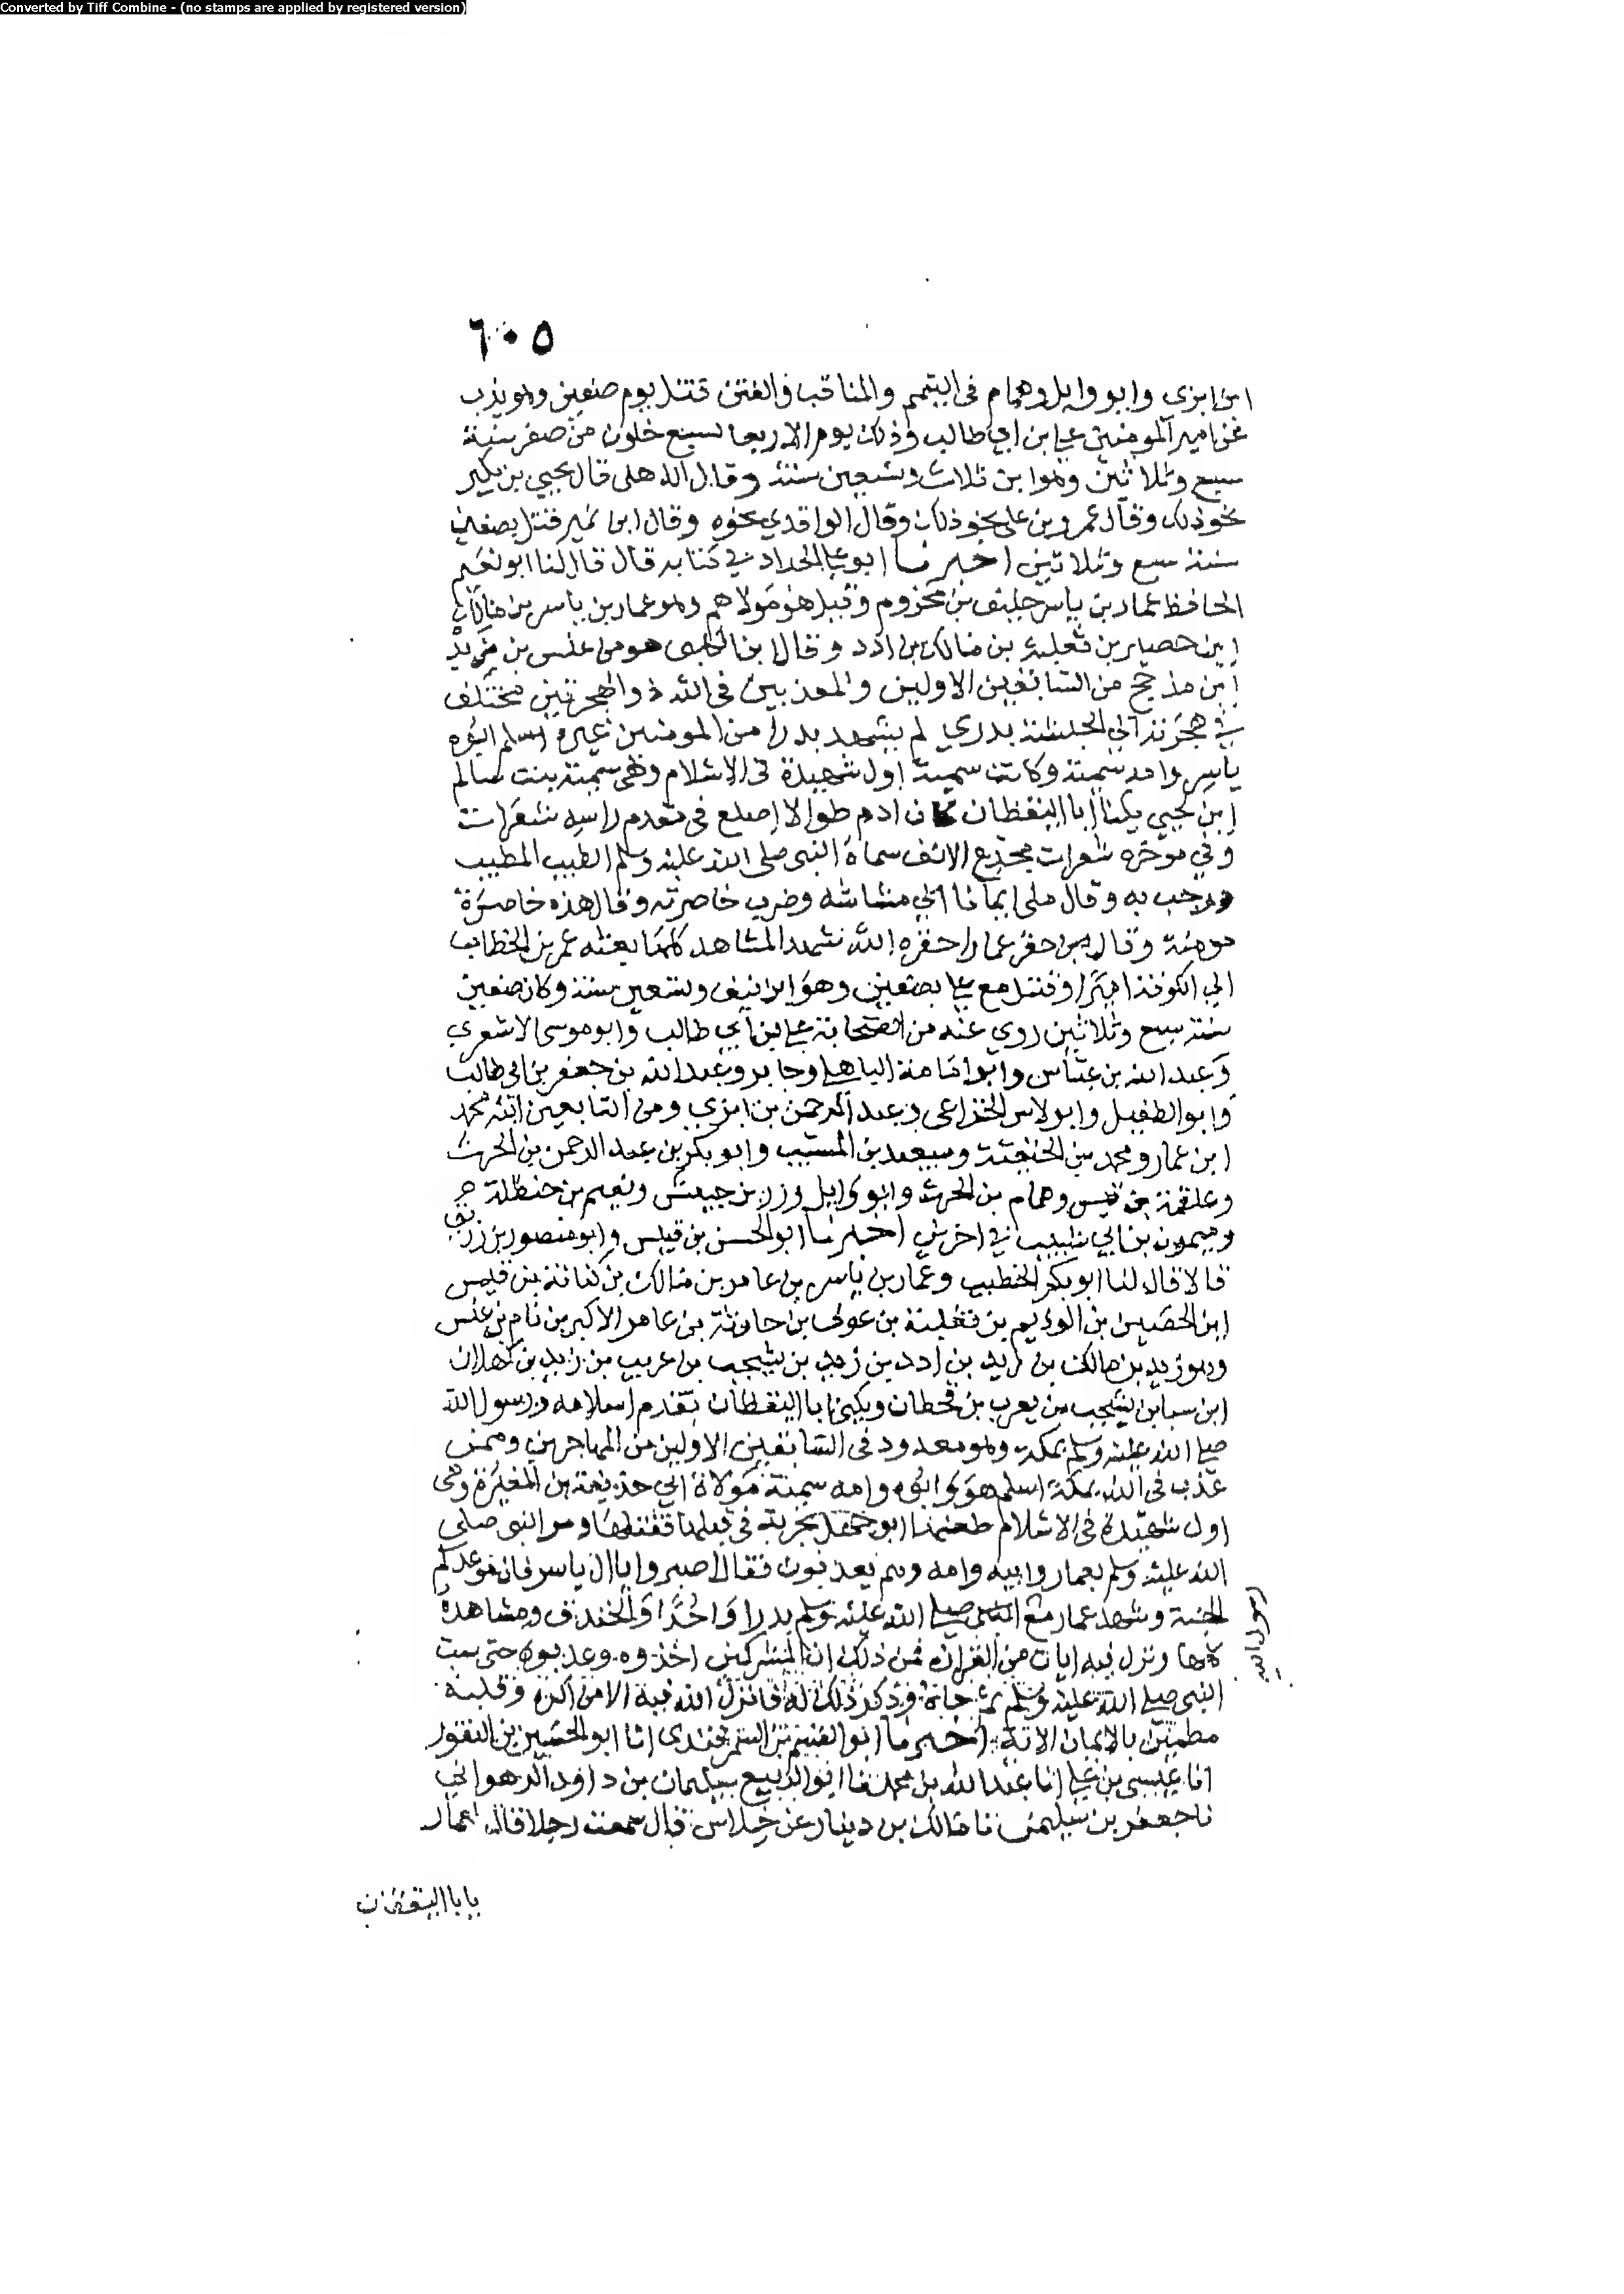 Converted by Tiff Combine - (no stamps are applied by registered version)
٦٠٥
ابن ابزي وابو وايل وهمام في التيمم والمناقب والفتن قتل يوم صفين وهو يذب
عن امير المومنين علي ابن ابي طالب وذلك يوم الاربعا لسبع خلون من صفر سنة
سبع وثلاثين وهو ابن ثلاث وتسعين سنة وقال الذهلي قال يحيي بن بكير
نحو ذلك وقال عمرو بن علي نحو ذلك وقال الواقدي نحوه وقال ابن نمير قتل بصفين
سنة سبع وثلاثين اخبرنا ابو علي الحداد في كتابه قال قال لنا ابو نعيم
الحافظ عمار بن ياسر حليف بن مخزوم وقيل هو مولاهم وهو عمار بن ياسر بن مالك
ابن حصين بن ثعلبة بن مالك بن ادد وقال ابن الكلبي هو من عنس بن يزيد
ابن مذحج من السابقين الاولين والمعذبين في الله ذو الهجرتين مختلف
في هجرته الي الحبشة بدري لم يشهد بدرا من المومنين غيره اسلم ابوه
ياسر وامه سمية وكانت سمية اول شهيدة في الاسلام وهي سمية بنت سالم
ابن يحيي يكنا ابا اليقظان كان ادم طوالا اصلع في مقدم راسه شعرات
وفي موخره شعرات مجدع الانف سماه النبي صلى الله عليه وسلم الطيب المطيب
ورحب به وقال ملي ايمانا الي مشاشه وضرب خاصرته وقال هذه خاصرة
مومنة وقال من حقر عمارا حقره الله شهد المشاهد كلها بعثه عمر بن الخطاب
الي الكوفة اميرا وقتل مع علي بصفين وهو ابن نيف وتسعين سنة وكان صفين
سنة سبع وثلاثين روي عنه من الصحابة علي بن ابي طالب وابو موسى الاشعري
وعبد الله بن عباس وابو امامة الباهلي وجابر وعبد الله بن جعفر بن ابي طالب
وابو الطفيل وابو لاس الخزاعي وعبد الرحمن بن ابزي ومن التابعين ابنه محمد
ابن عمار ومحمد بن الحنفية وسعيد بن المسيب وابو بكر بن عبد الرحمن بن الحرث
وعلقمة بن قيس وهمام بن الحرث وابو وايل وزر بن حبيش ونعيم بن حنظلة
وميمون بن ابي شبيب في اخرين اخبرنا ابو الحسن بن قبيس وابو منصور بن زريق
قالا قال لنا ابو بكر الخطيب وعمار بن ياسر بن عامر بن مالك بن كنانة بن قيس
ابن الحصين بن الوذيم بن ثعلبة بن عوف بن حارثة بن عامر الاكبر بن نام بن عنس
وهو زيد بن مالك بن ادد بن زيد بن يشجب بن عريب بن زيد بن كهلان
ابن سبا بن يشجب بن يعرب بن قحطان ويكنى ابا اليقظان تقدم اسلامه ورسول الله
صلى الله عليه وسلم بمكة وهو معدود في السابقين الاولين من المهاجرين وممن
عذب في الله بمكة اسلم هو وابوه وامه سمية مولاة ابي حذيفة بن المغيرة وهي
اول شهيدة في الاسلام طعنها ابو جهل بحربة في قبلها فقتلها ومر النبي صلى
الله عليه وسلم بعمار وابيه وامه وهم يعذبون فقال اصبروا يا ال ياسر فان موعدكم
الجنة وشهد عمار مع النبي صلى الله عليه وسلم بدرا واحدا والخندق ومشاهده
رسول الله
كلها ونزل فيه ايات من القران فمن ذلك ان المشركين اخذوه وعذبوه حتى سب
النبي صلى الله عليه وسلم ثم جاه وذكر ذلك له فانزل الله فيه الا من اكره وقلبه
مطمين بالايمان الاية اخبرنا ابو القسم بن السمرقندي انا ابو الحسين بن النقور
انا عيسى بن علي انا عبد الله بن محمد نا ابو الربيع سليمان بن داود الزهراني
نا جعفر بن سليمن نا مالك بن دينار عن خلاس قال سمعت رجلا قال عمار
يا با اليقظان